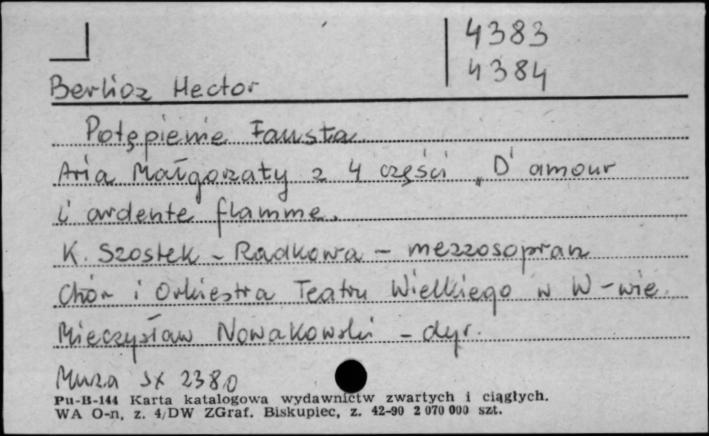 4383
4384
Berlioz Hector
Potępienie Fausta
Aria Małgorzaty z 4 części „D'amour
l'ardente flamme.
K. Szostek - Radkowa - mezzosopran
Chór i Orkiestra Teatru Wielkiego w W-wie
Mieczysław Nowakowski - dyr.
Muza SX 2380
Pu-B-144 Karta katalogowa wydawnictw zwartych i ciągłych.
WA O-n, z. 4/DW ZGraf. Biskupiec, z. 42-90 2 070 000 szt.